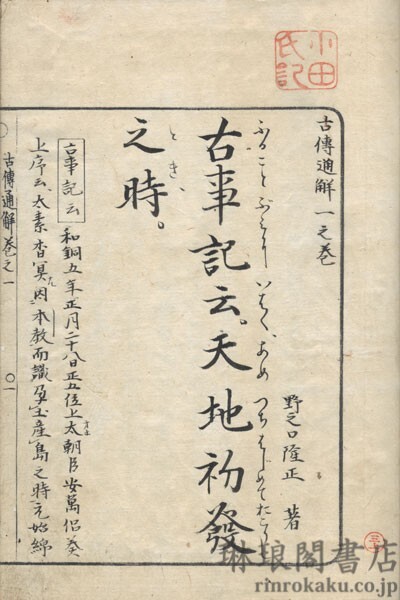 小田
氏記
古傳通解一之巻
野之口隆正 著
ふることぶみに いはく、あめ つちはじめておこり
古事記云。天地初發
之時。
とき、
古事記云 和銅五年正月二十八日正五位上太朝臣安萬侶奏
上序云、太素杳冥因本教而識孕土産島之時元始綿
古傳通解巻之一 〇一
琳琅閣書店
rinrokaku.co.jp